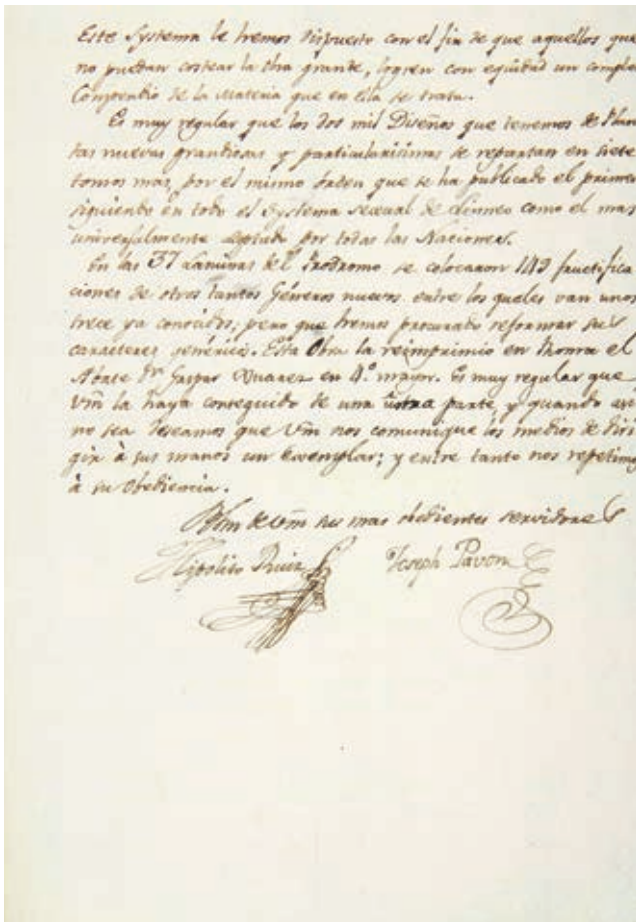 Este Systema le hemos dispuesto con el fin de que aquellos que
no puedan costear la obra grande, logren con equidad un comple
Compendio de la Materia que en ella se trata.
Es muy regular que los dos mil Diseños que tenemos de Plan
tas nuevas grandiosas y particularisimas se repartan en siete
tomos mas, por el mismo orden que se ha publicado el primero
siguiendo en todo el Systema sexual de Linneo como el mas
universalmente adoptado por todas las Naciones.
En las 37 Laminas del Prodromo se colocaron 149 fructifica
ciones de otros tantos Géneros nuevos entre los quales van unos
trece ya conocidos; pero que hemos procurado reformar sus
caracteres genéricos. Esta Obra la reimprimio en Roma el
Abate Dn. Gaspar Xuarez en 4.º mayor. Es muy regular que
Vm̃ la haya conseguido de una u otra parte, y quando
no sea deseamos que Vm̃ nos comunique los medios de diri
gir à sus manos un Exemplar; y entre tanto nos repetimos
à su obediencia.
de Vm̃ sus mas obedientes servidores
Hipolito Ruiz Joseph Pavon